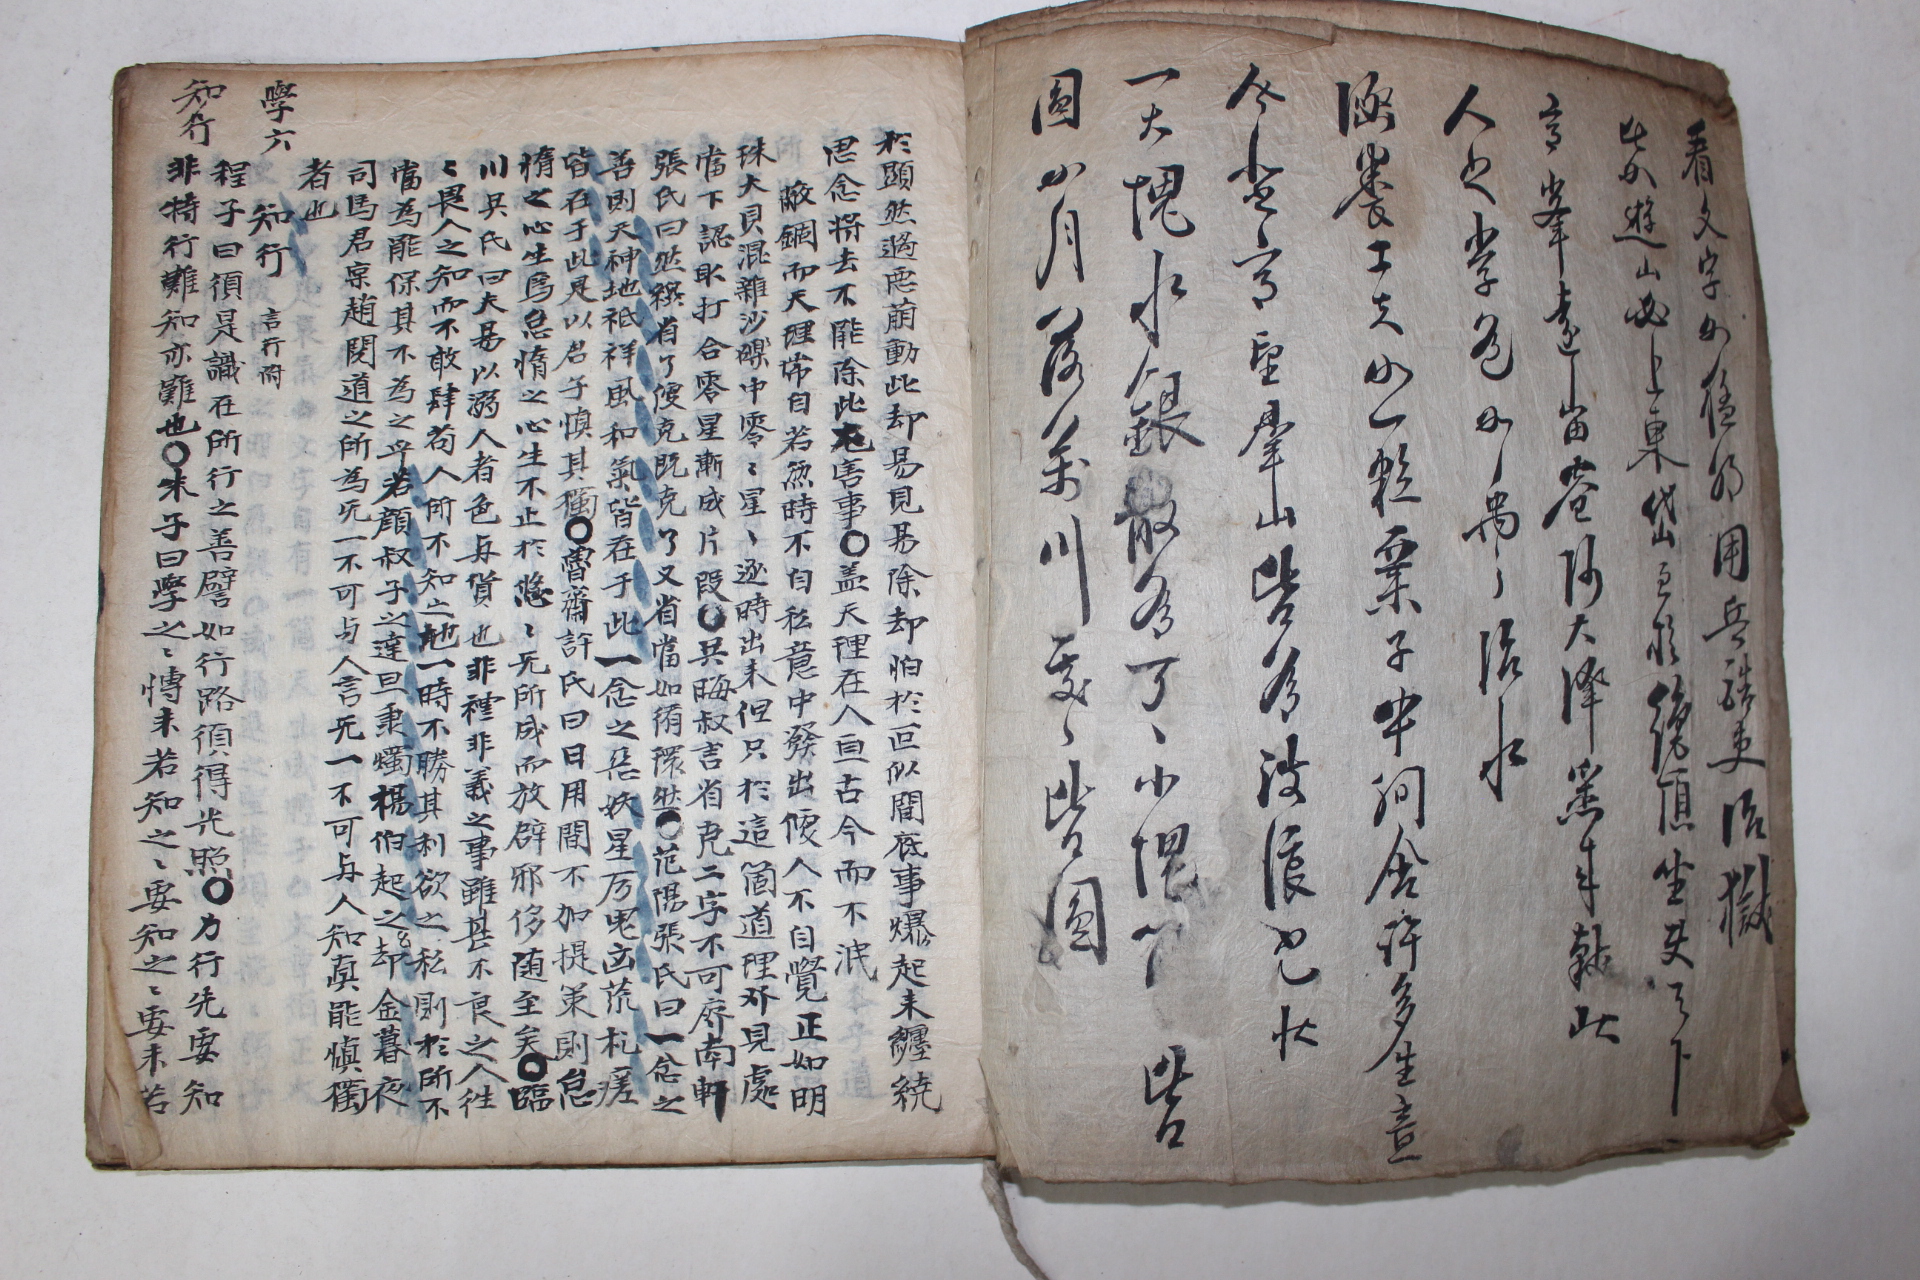 看文字如猛將用兵酷吏治獄
如遊山必上東岱至於絶頂坐
高峯遠岫密林大澤
人之學
涵養工夫如一粒粟子中間含許多生意
今登高望群山皆爲波浪之狀
一大塊水銀散爲了〻小塊 皆
圓如月落萬川處〻皆圓
於顯然過惡萌動此却易見易除却怕於匹似間底事爆起來纏繞
思念將去不能除此尤害事〇盖天理在人亘古今而不泯
蔽錮而天理常自若無時不自私意中發出但人不自覺正如明
珠大貝混雜沙礫中零〻星〻逐時出來但只於這箇道理發見處
當下認取打合零星漸成片段〇吳晦叔言省克二字不可廢南軒
張氏曰然纔省了便克既克了又省當如循環然〇范陽張氏曰一念之
善則天神地祇祥風和氣皆在于此一念之惡妖星厲鬼凶荒札瘥
皆在于此是以君子愼其獨〇魯齋許氏曰日用間不加提策則怠
惰之心生焉怠惰之心生不止於悠〻无所成而放辟邪侈随至矣〇臨
川吳氏曰夫易以溺人者色與貨也非禮非義之事雖甚不良之人往
〻畏人之知而不敢肆苟人所不知之地一時不勝其利欲之私則於所不
當爲能保其不爲之乎若顔叔子之達旦秉燭楊伯起之却金暮夜
司馬君實趙閱道之所爲无一不可与人言无一不可与人知眞能愼獨
者也
學六 知行 言行附
程子曰須是識在所行之善譬如行路須得光照〇力行先要知
知行 非特行難知亦難也〇朱子曰學之〻博未若知之〻要知之〻要未若